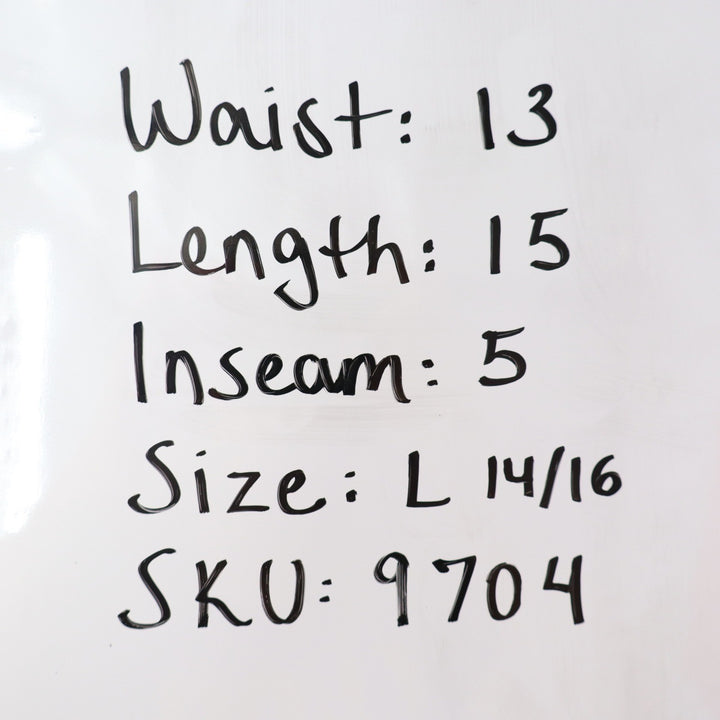 Waist: 13
Length: 15
Inseam: 5
Size: L 14/16
SKU: 9704